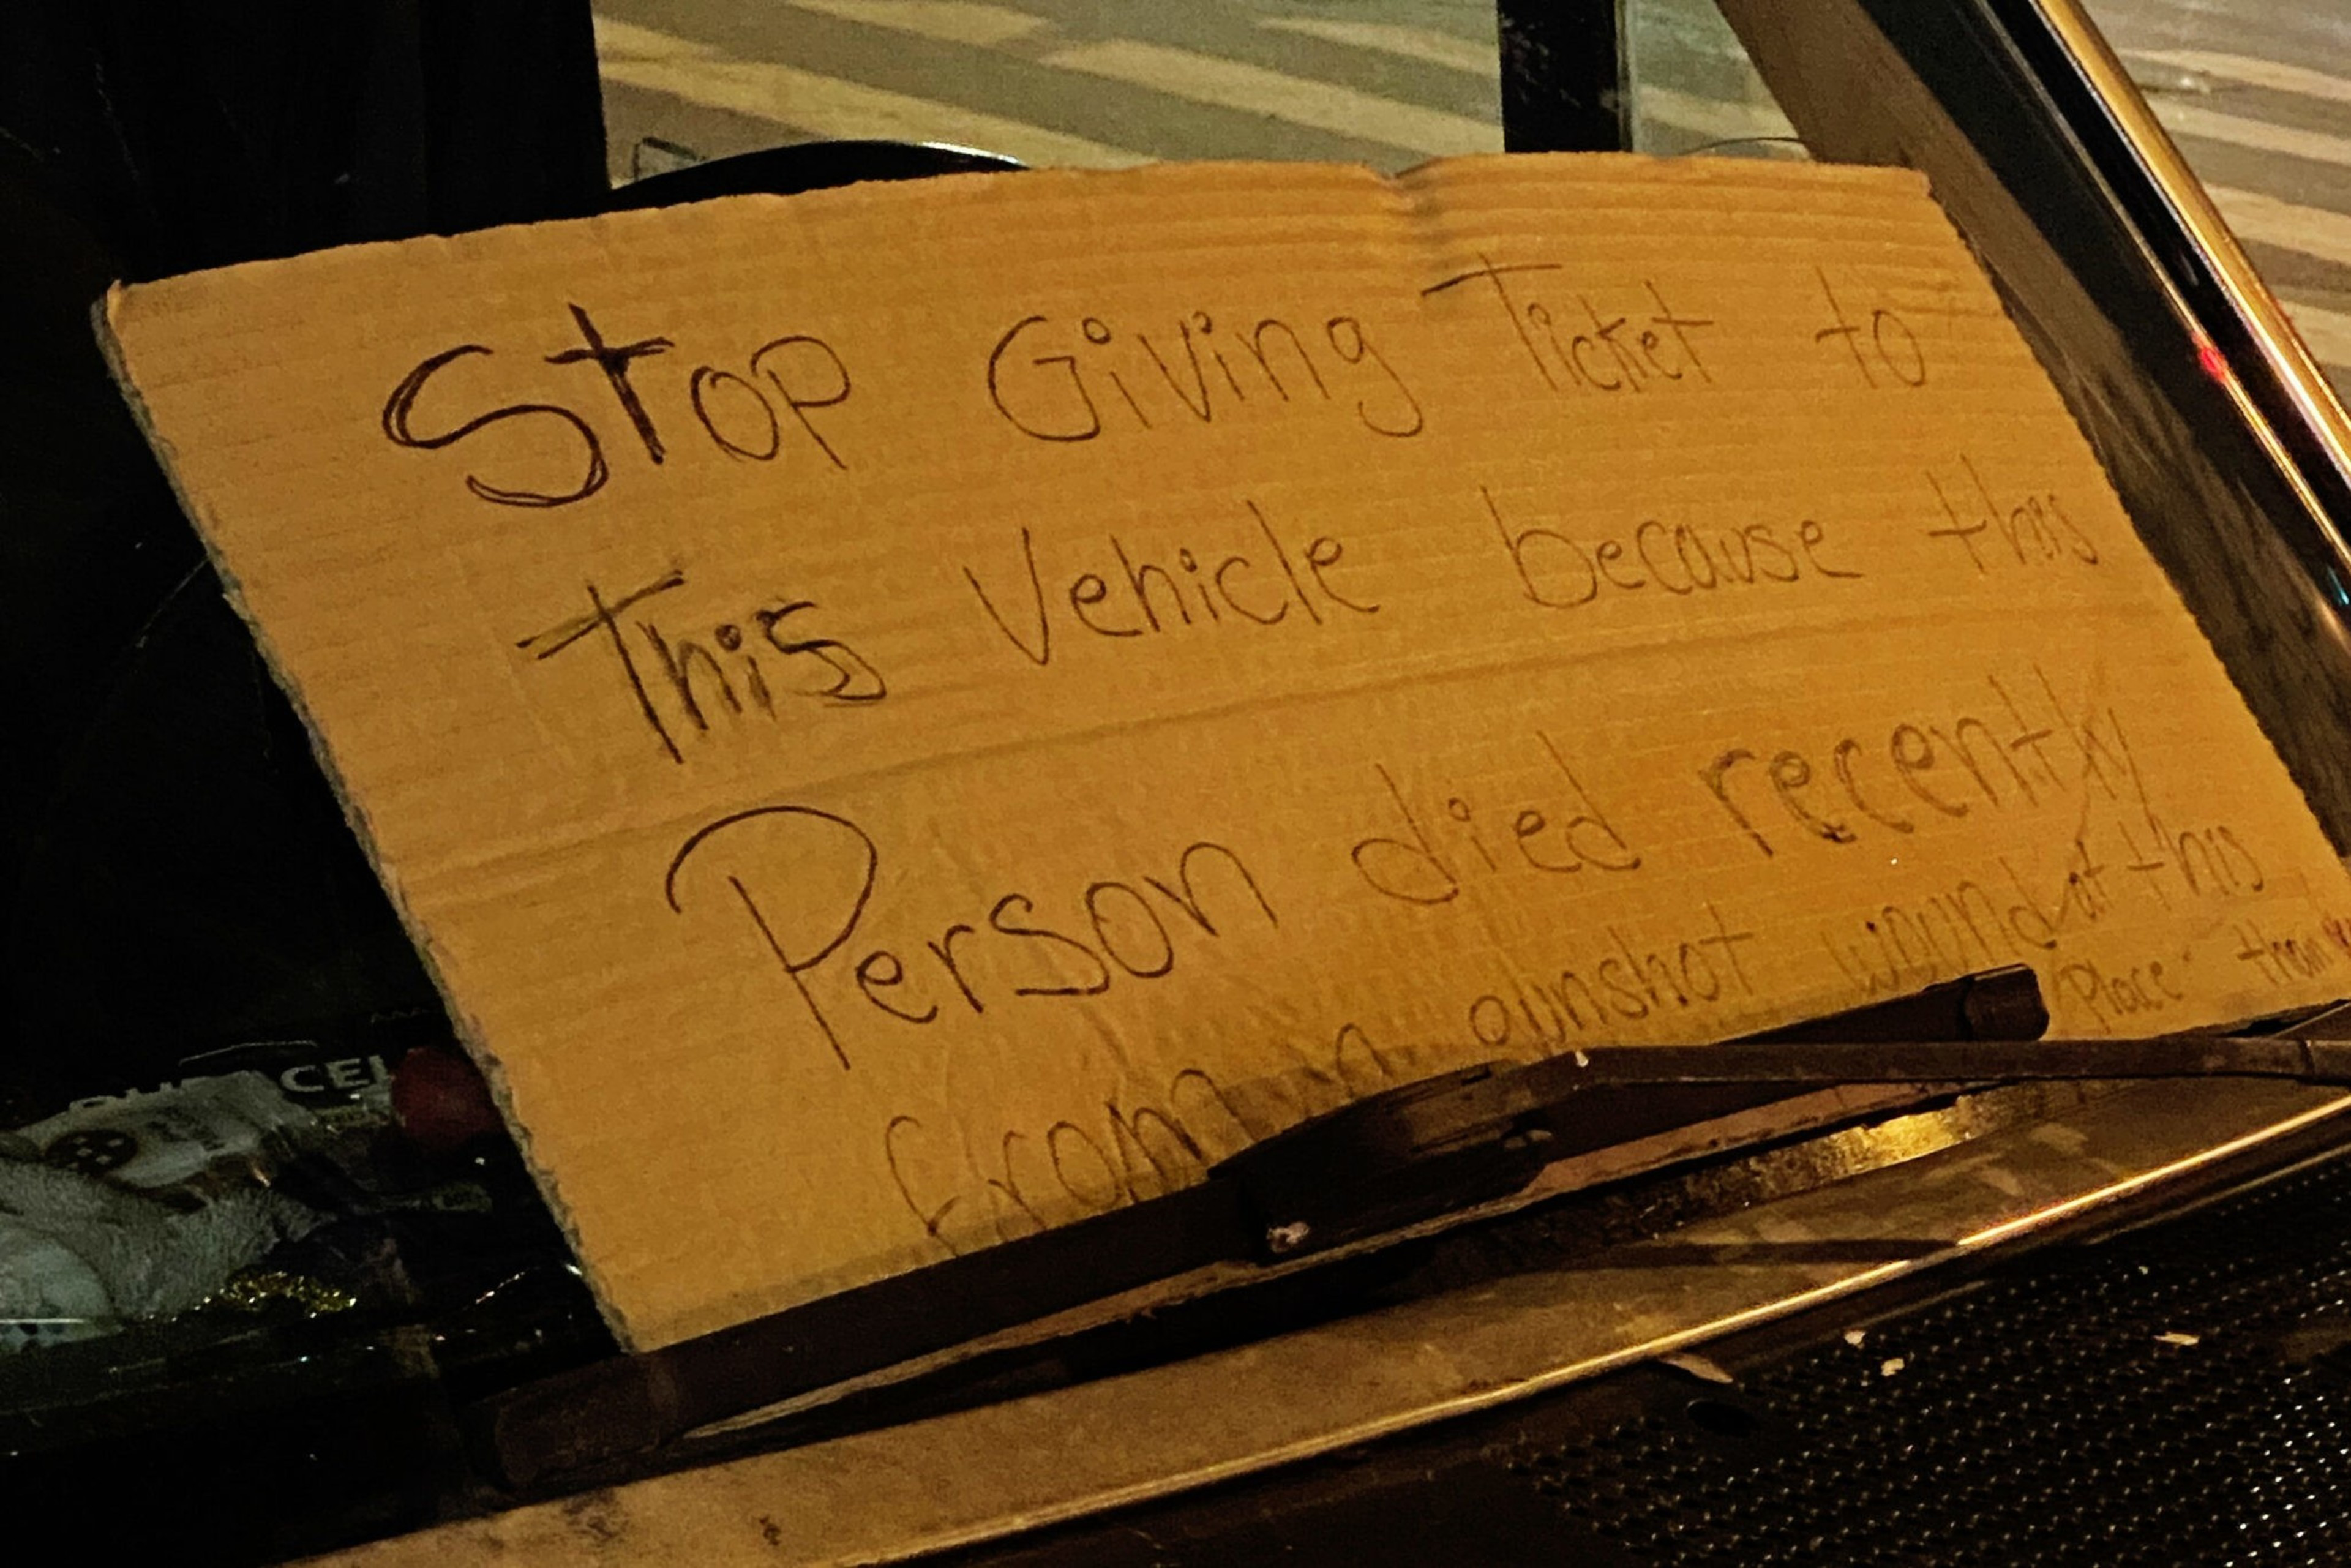 Stop Giving Ticket to
This Vehicle because this
Person died recently
from a gunshot wound at this
Place.